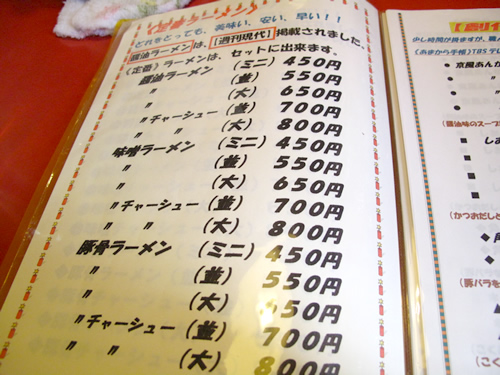 どれをとっても、美味い、安い、早い！！
醤油ラーメンは、【週刊現代】掲載されました。
（定番）ラーメンは、セットに出来ます。
醤油ラーメン （ミニ） 450円
〃 （並） 550円
〃 （大） 650円
〃チャーシュー （並） 700円
〃 〃 （大） 800円
味噌ラーメン （ミニ） 450円
〃 （並） 550円
〃 （大） 650円
〃チャーシュー （並） 700円
〃 〃 （大） 800円
豚骨ラーメン （ミニ） 450円
〃 （並） 550円
〃 （大） 650円
〃チャーシュー （並） 700円
〃 〃 （大） 800円
【創
少し時間が掛ますが、麺
（あまから手帳）TBSテレ
● 京風あんか
●
●
●
（醤油味のスープ
■ しま
■
■
■
（かつおだしと
◆
◆
（豚バラを
■
（こく